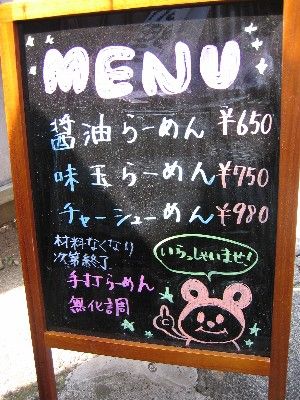 MENU
醤油らーめん ¥650
味玉らーめん ¥750
チャーシューめん ¥980
材料なくなり
次第終了
手打らーめん
無化調
いらっしゃいませ!